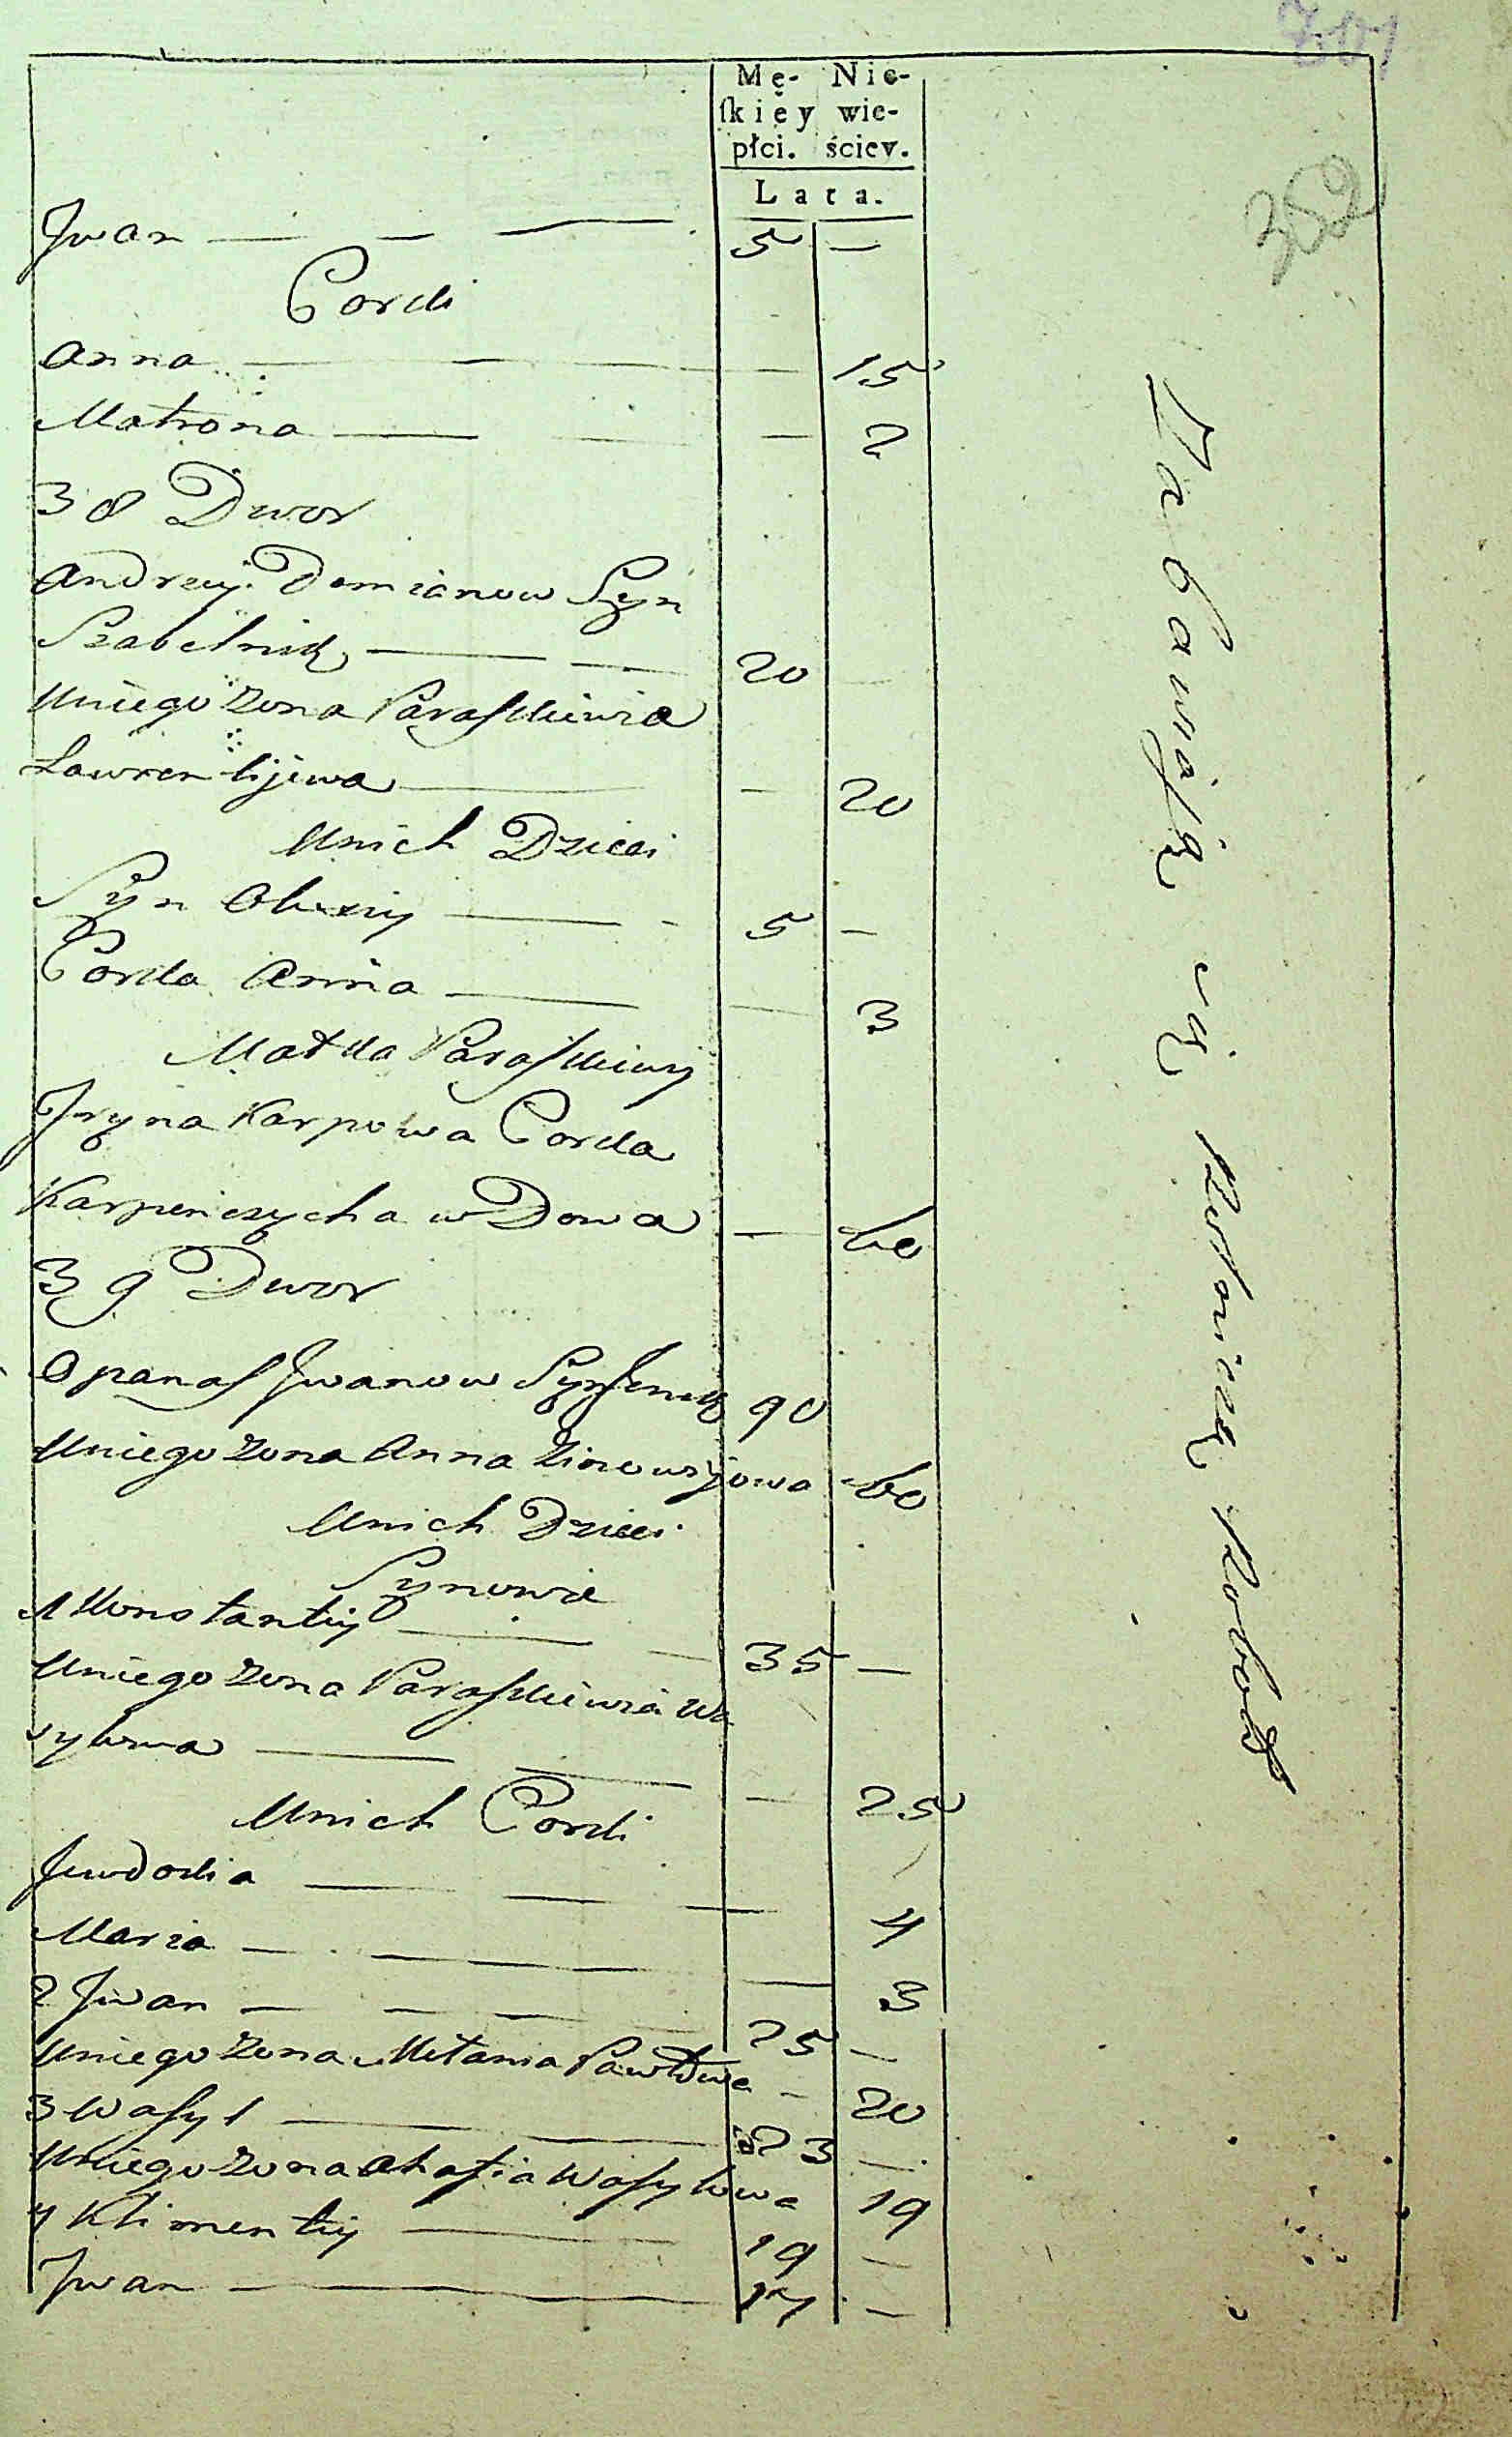 301
352
Mę- Nie-
ſkiéy wie-
płci. ściey.
Lata.
Jwan — — — 5 —
Corki
Anna — — — — 15
Matrona — — — 2
38 Dwor
Andrzey Demianow Syn
Szabelnik — — 20 —
Uniego zona Paraskiewia
Lawrentijewa — — 20
Unich Dzieci
Syn Alexiy — - 5 —
Corka Anna — — 3
Matka Paraskiewij
Jryna Karpowa Corka
Karpenczycha wDowa — 60
39 Dwor
Opanas Jwanow 90
Uniego zona Anna Zinowijowa 60
Unich Dzieci
Synowie
1 Konstantiy — — 35 —
Uniego zona Paraskiewia Wa
sylowa — — — 25
Unich Corki
Jewdokia — — — 4
Maria — — — — 3
2 Jwan — — — 25 —
Uniego zona Melania Pawłowa — 20
3 Wasyl — — 23 —
Uniego zona Ahafia Wasylowa 19
4 Klimentiy — — 19 —
Jwan — — 17 —
Zabawiaią się Rolniczą Robotą